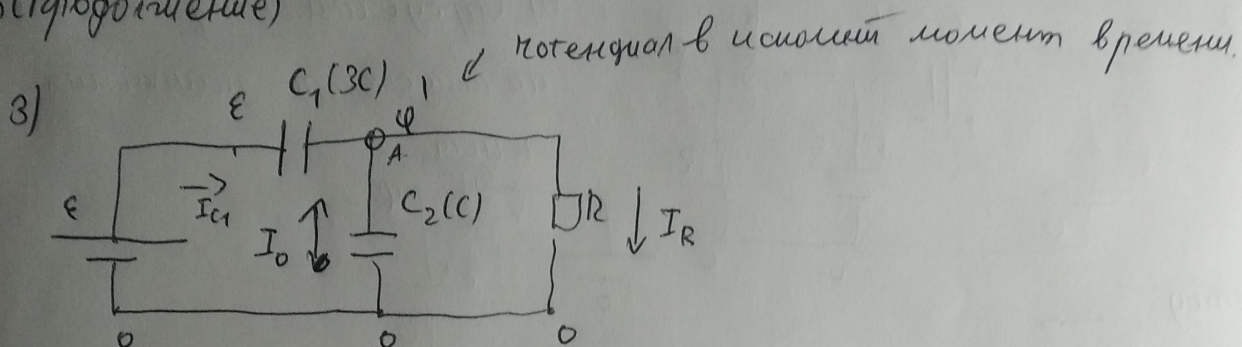 (продолжение)
потенциал в искомый момент времени.
3)
ε C₁(3C) φ
A
ε I_C1 I₀ C₂(C) R I_R
0 0 0